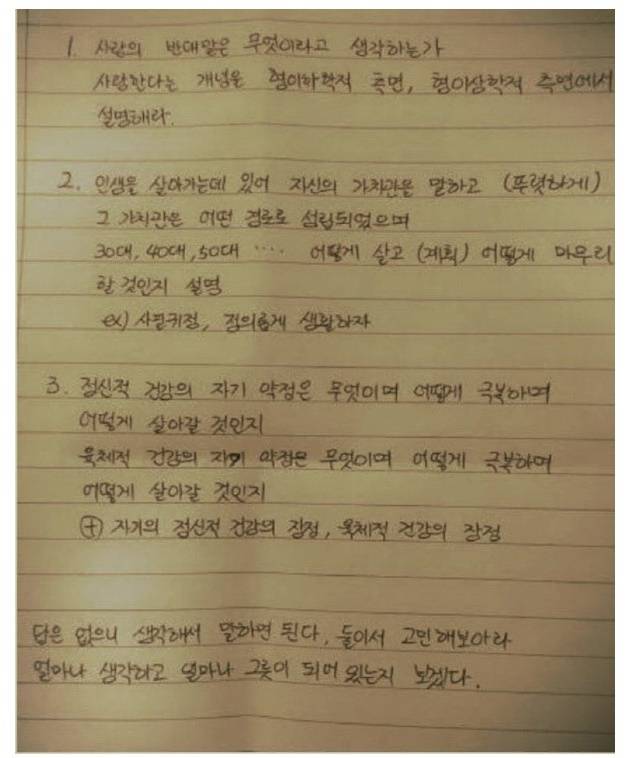 1. 사랑의 반대말은 무엇이라고 생각하는가
사랑한다는 개념을 형이하학적 측면, 형이상학적 측면에서
설명해라.
2. 인생을 살아가는데 있어 자신의 가치관을 말하고 (뚜렷하게)
그 가치관은 어떤 경로로 성립되었으며
30대, 40대, 50대 .... 어떻게 살고 (계획) 어떻게 마무리
할 것인지 설명
ex) 사필귀정, 정의롭게 생활하자
3. 정신적 건강의 자기 약점은 무엇이며 어떻게 극복하며
어떻게 살아갈 것인지
육체적 건강의 자기 약점은 무엇이며 어떻게 극복하며
어떻게 살아갈 것인지
⊕ 자기의 정신적 건강의 장점, 육체적 건강의 장점
답은 없으니 생각해서 말하면 된다. 둘이서 고민해보아라
얼마나 생각하고 얼마나 그릇이 되어 있는지 보겠다.